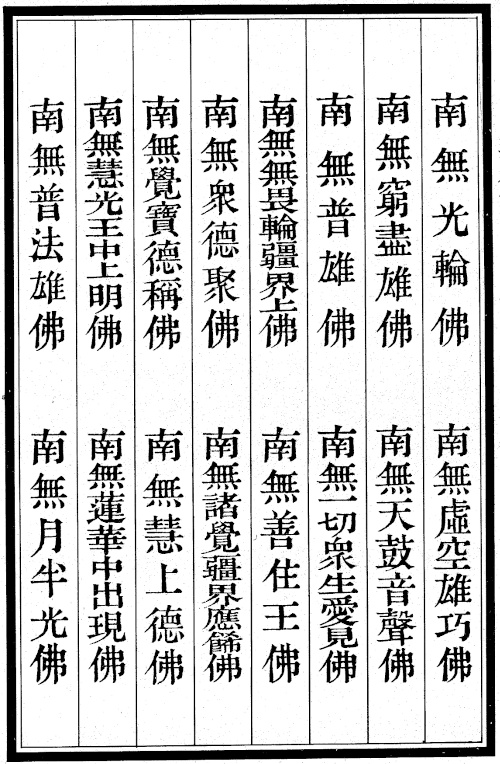 南無光輪佛　南無虛空雄巧佛
南無窮盡雄佛　南無天鼓音聲佛
南無普雄佛　南無一切衆生愛見佛
南無無畏輪疆界上佛　南無善住王佛
南無衆德聚佛　南無諸覺疆界應餙佛
南無覺寶德稱佛　南無慧上德佛
南無慧光王中上明佛　南無蓮華中出現佛
南無普法雄佛　南無月半光佛